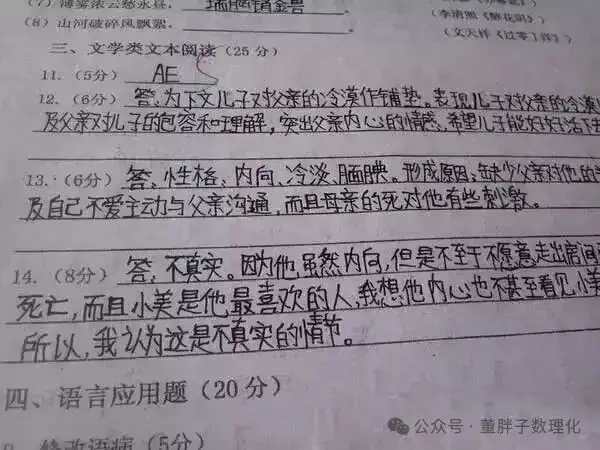 (7) 薄雾浓云愁永昼, 瑞脑销金兽
(李清照《醉花阴》)
(8) 山河破碎风飘絮,
(文天祥《过零丁洋》)
三、文学类文本阅读(25分)
11. (5分) AE
12. (6分) 答:为下文儿子对父亲的冷漠作铺垫。表现儿子对父亲的冷漠
及父亲对儿子的包容和理解,突出父亲内心的情感,希望儿子能好好活下去
13. (6分) 答:性格:内向、冷淡、腼腆。形成原因:缺少父亲对他的
及自己不爱主动与父亲沟通,而且母亲的死对他有些刺激。
14. (8分) 答:不真实。因为他虽然内向,但是不至于不愿意走出房间
死亡,而且小美是他最喜欢的人,我想他内心也不甚至看见小美
所以,我认为这是不真实的情节。
四、语言应用题(20分)
修改语病(5分)
公众号·董胖子数理化